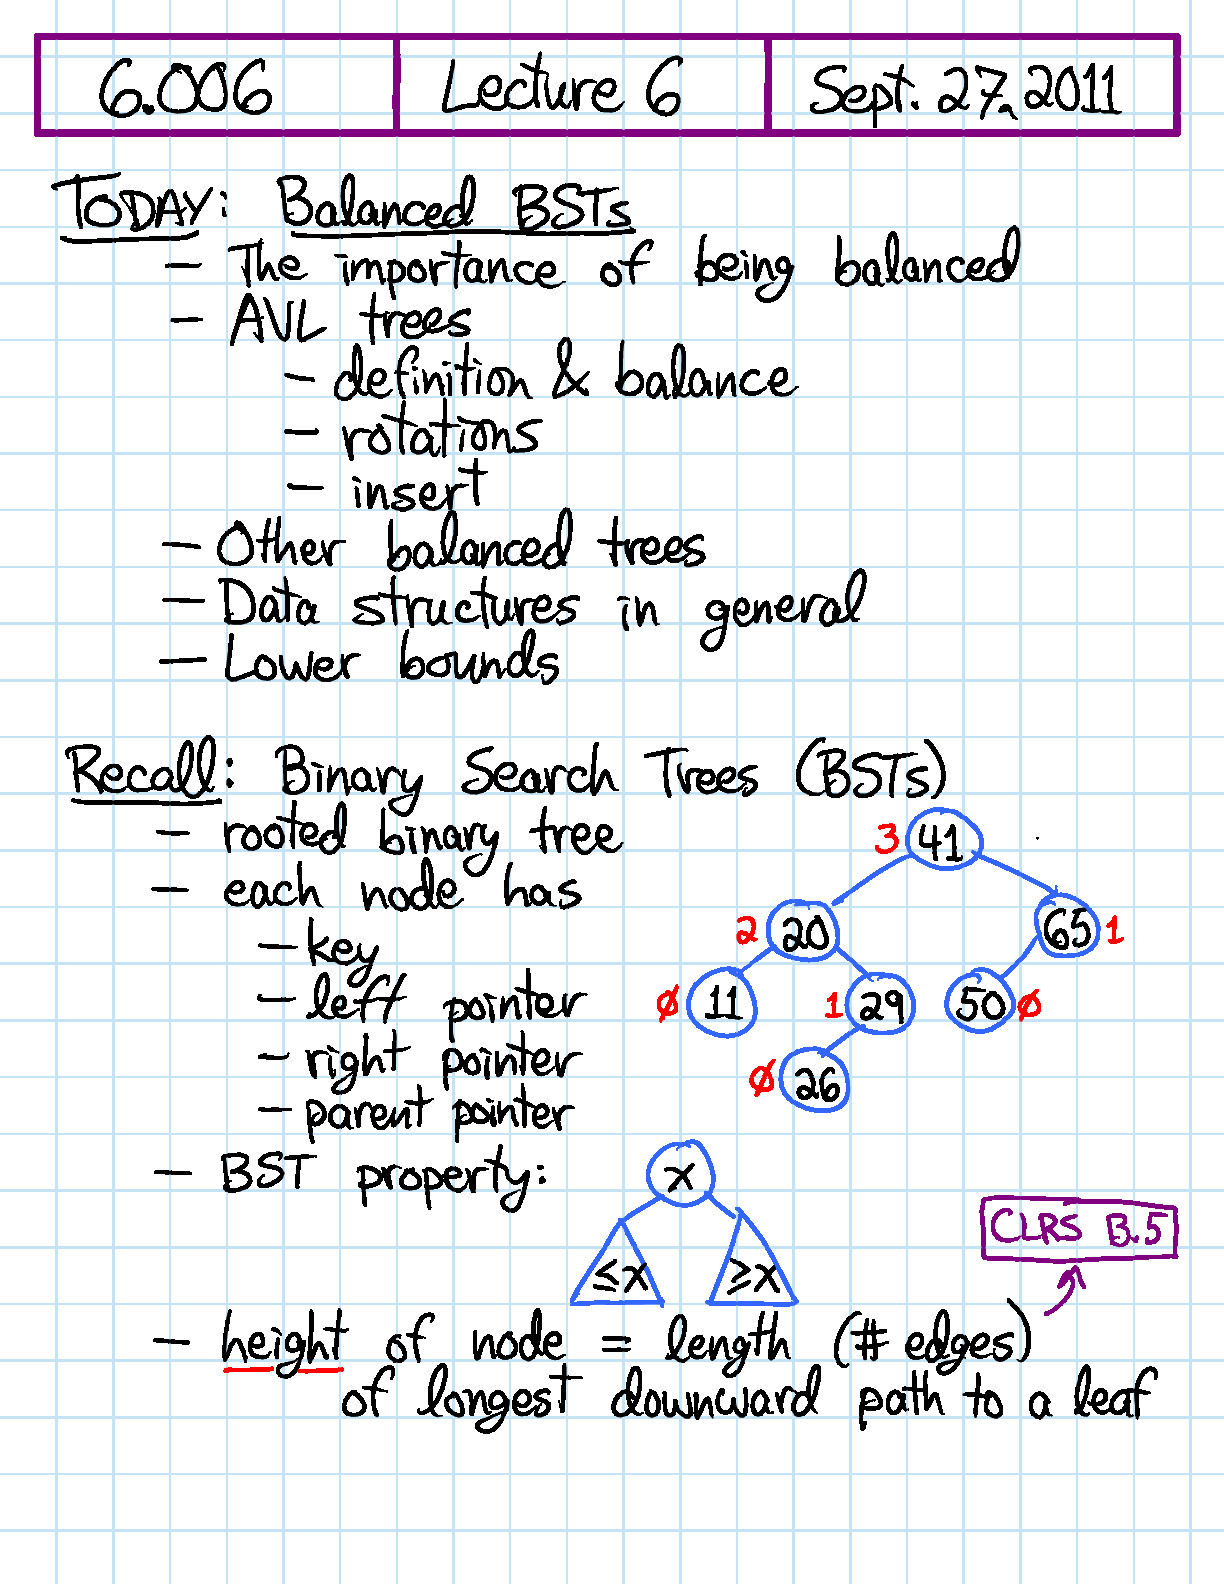 6.006 Lecture 6 Sept. 27, 2011
TODAY: Balanced BSTs
- The importance of being balanced
- AVL trees
- definition & balance
- rotations
- insert
- Other balanced trees
- Data structures in general
- Lower bounds
Recall: Binary Search Trees (BSTs)
- rooted binary tree
- each node has
- key
- left pointer
- right pointer
- parent pointer
3 41
2 20
65 1
ø 11
1 29
50 ø
ø 26
- BST property:
x
≤x
≥x
CLRS B.5
- height of node = length (# edges)
of longest downward path to a leaf